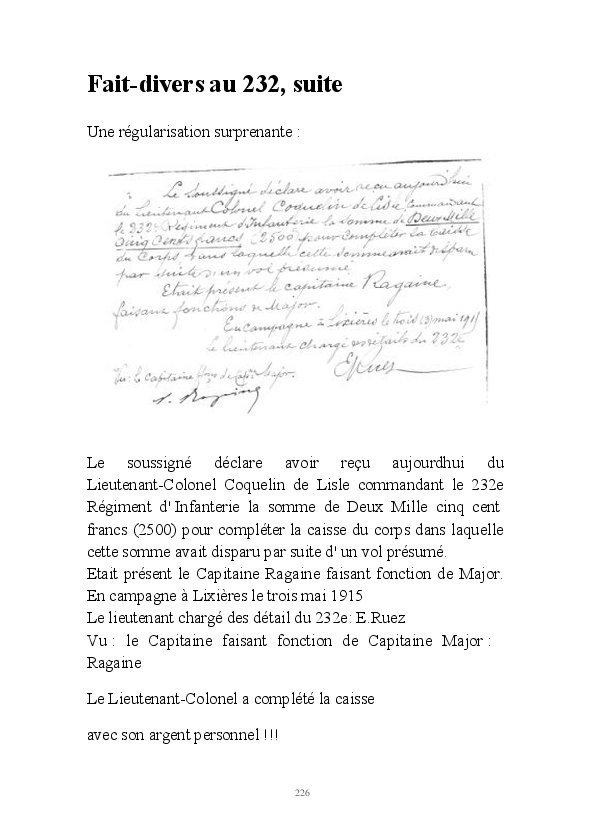 Fait-divers au 232, suite
Une régularisation surprenante :
Le soussigné déclare avoir reçu aujourd'hui
du Lieutenant Colonel Coquelin de Lisle Commandant
le 232e Régiment d'Infanterie la somme de Deux Mille
Cinq Cents francs (2500) pour compléter la Caisse
du Corps dans laquelle cette somme avait disparu
par suite d'un vol présumé
Etait présent le capitaine Ragaine,
faisant fonctions de Major.
En campagne à Lixières le trois (3) mai 191
le lieutenant chargé des détails du 232e
Vu: le Capitaine de Major.
ERuez
Ragaine
Le soussigné déclare avoir reçu aujourdhui du
Lieutenant-Colonel Coquelin de Lisle commandant le 232e
Régiment d'Infanterie la somme de Deux Mille cinq cent
francs (2500) pour compléter la caisse du corps dans laquelle
cette somme avait disparu par suite d'un vol présumé.
Etait présent le Capitaine Ragaine faisant fonction de Major.
En campagne à Lixières le trois mai 1915
Le lieutenant chargé des détail du 232e: E.Ruez
Vu : le Capitaine faisant fonction de Capitaine Major :
Ragaine
Le Lieutenant-Colonel a complété la caisse
avec son argent personnel !!!
226